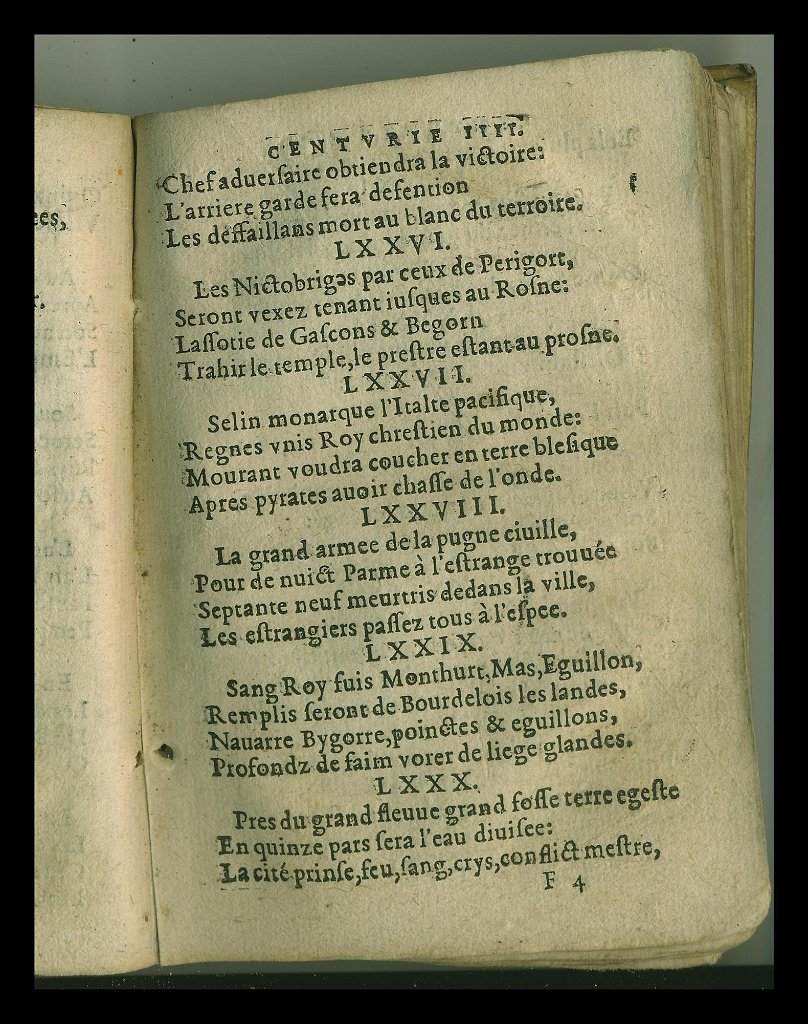 ees,
r.
CENTVRIE IIII.
Chef aduerſaire obtiendra la victoire:
L'arriere garde fera defention
Les deffaillans mort au blanc du terroire.
LXXVI.
Les Nictobriges par ceux de Perigort,
Seront vexez tenant iuſques au Roſne:
Laſſotie de Gaſcons & Begorn
Trahir le temple, le preſtre eſtant au proſne.
LXXVII.
Selin monarque l'Italte pacifique,
Regnes vnis Roy chreſtien du monde:
Mourant voudra coucher en terre bleſique
Apres pyrates auoir chaſſe de l'onde.
LXXVIII.
La grand armee de la pugne ciuille,
Pour de nuict Parme à l'eſtrange trouuée
Septante neuf meurtris dedans la ville,
Les eſtrangiers paſſez tous à l'eſpee.
LXXIX.
Sang Roy fuis Monthurt, Mas, Eguillon,
Remplis ſeront de Bourdelois les landes,
Nauarre Bygorre, poinctes & eguillons,
Profondz de faim vorer de liege glandes.
LXXX.
Pres du grand fleuue grand foſſe terre egeſte
En quinze pars ſera l'eau diuiſee:
La cité prinſe, feu, ſang, crys, conflict meſtre,
F 4